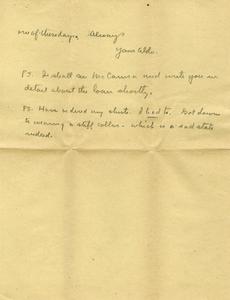 me of Thursday. Always
Yours Aldo.
P.S. I shall see McCanna and write you in
detail about the loan shortly.
P.S. Have ordered my shirts. I had to. Got down
to wearing a stiff collar - which is a sad state
indeed.